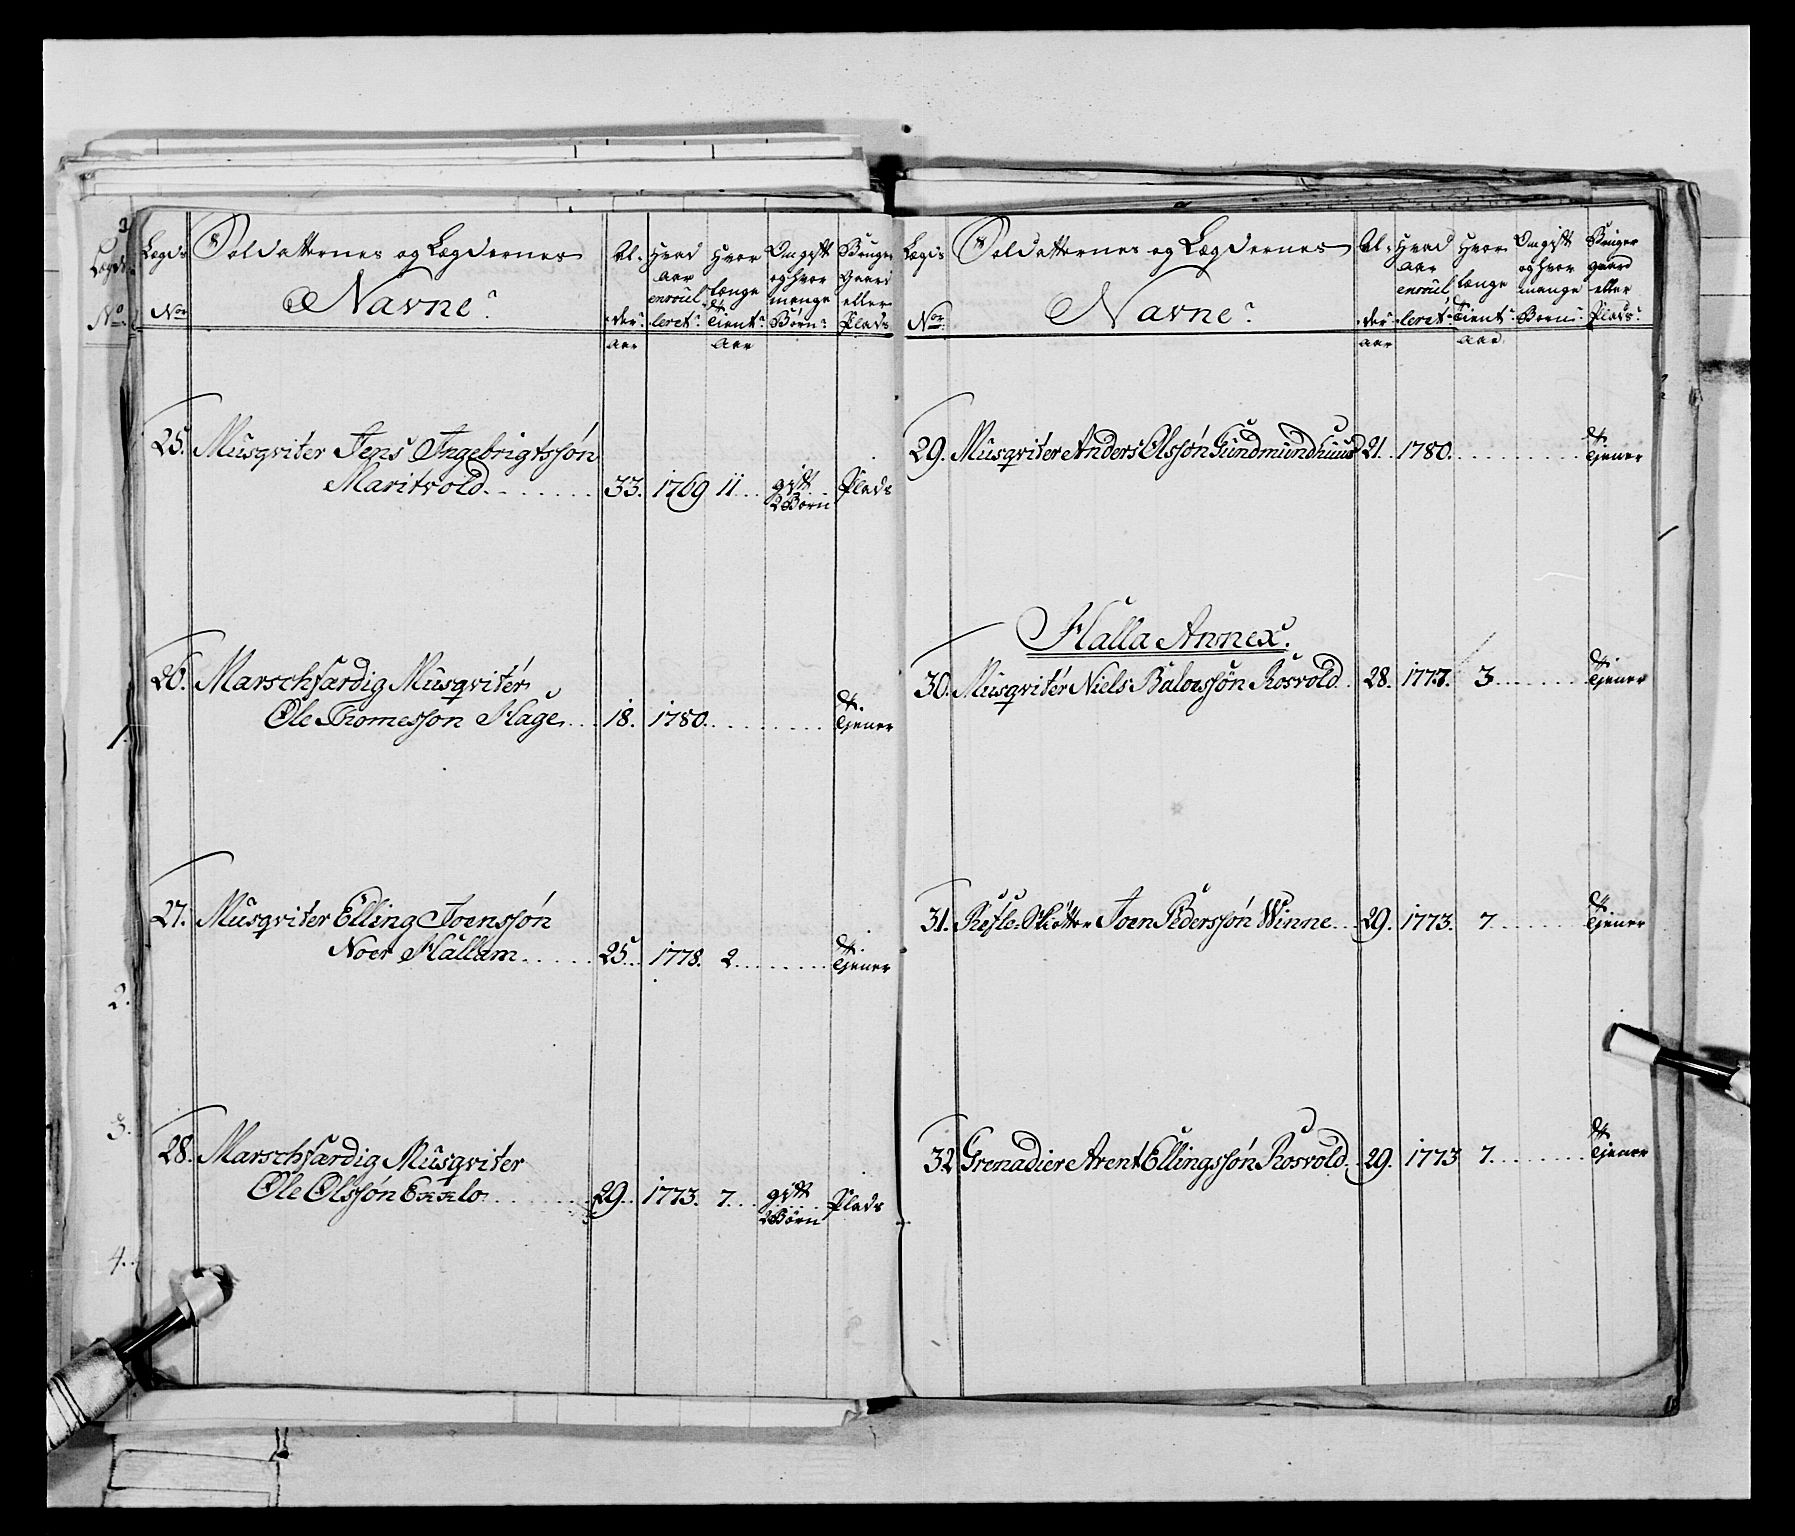 Lægds
No:
1.
2.
3.
4.
Lægds Nor
Soldatternes og Lægdernes
Navne
Al- der aar
Hvad aar enroul- leret
Hvor længe Tient aar
Om gift og hvor mange Børn
Bruger Gaard eller Plads
25. Musqviter Jens Ingebrigtssøn
Maritvold 33. 1769 11 gift 2 Børn Plads
26. Marschfærdig Musqviter
Ole Thomessøn Hage 18. 1780. Tjener
27. Musqviter Elling Joenssøn
Noer Hallam 25. 1778. 2 Tjener
28. Marschfærdig Musqviter
Ole Olssøn Exlo 29. 1773. 7 gift 2 Børn Plads
Lægds Nor
Soldatternes og Lægdernes
Navne
Al- der aar
Hvad aar enroul- leret
Hvor længe Tient aar
Om gift og hvor mange Børn
Bruger gaard eller Plads
29. Musqviter Anders Olssøn Gundmundhuus 21. 1780. Tjener
Halla Annex.
30. Musqviter Niels Rosvold 28. 1777. 3 Tjener
31. Refle-Skøtter Joen Pederssøn Winne 29. 1773. 7 Tjener
32 Grenadier Arent Ellingssøn Rosvold 29. 1773 7. Tjener